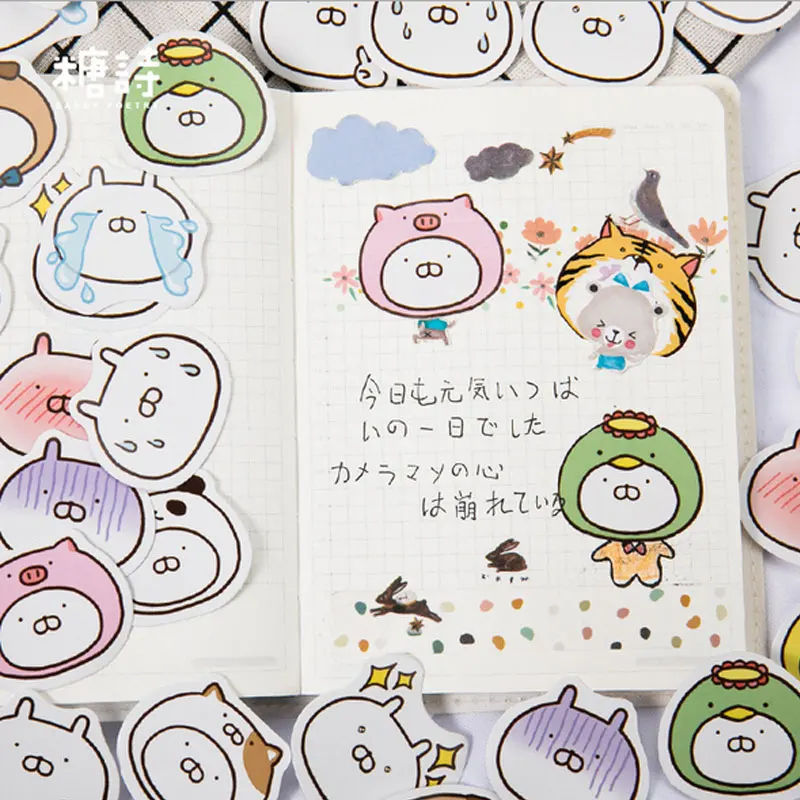 糖詩
CANDY POETRY
今日も元気いつぱ
いの一日でした
カメラマソの心
は崩れている